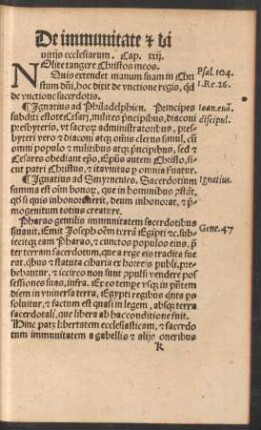 De immunitate ⁊ di
uitijs ecclesiarum. Cap. xxij.
NOlite tangere Christos meos.
Psal. 104.
Quis extendet manum suam in Chri
1. Re. 26.
stum dñi, hoc dixit de vnctione regis, qđ
de vnctione sacerdotis.
¶ Ignatius ad Philadelphien. Principes
Ioan. euā.
subditi estote Cesari, milites prīcipibus, diaconi
discipul.
presbyteris, vt sacrorum administratoribus, pres-
byteri vero ⁊ diaconi atq; omnis clerus simul, cū
omni populo ⁊ militibus atq; prīcipibus, sed ⁊
Cesares obediant epō, Epūs autem Christo, si-
cut patri Christus, ⁊ ita vnitas p omnia seruatur.
¶ Ignatius ad Smyrnenses. Sacerdotium
Ignatius.
summa est oīm bonorum, que in hominibus
qd si quis inhonorauerit, deum inhonorat, ⁊ p
mogenitum totius creature.
Pharao gentilis immunitatem sacerdotibus
seruauit. Emit Joseph oēm terrā Egipti ⁊c. sub-
Gene. 47
iecitq; eam Pharao, ⁊ cunctos populos eius, p
ter terram sacerdotum, que a rege eis tradita fue
rat, qbus ⁊ statuta cibaria ex horreis publi. pre-
bebantur, ⁊ iccirco non sunt cōpulsi vendere pos
sessiones suas, infra. Ex eo tempe vsq; in pntem
diem in vniuersa terra, Egypti regibus qnta ps
soluitur, ⁊ factum est quasi in legem, absq; terra
sacerdotali, que libera ab hac conditione fuit.
Hinc patz libertatem ecclesiasticam, ⁊ sacerdo
tum immunitatem a gabellis ⁊ alijs oneribus
K